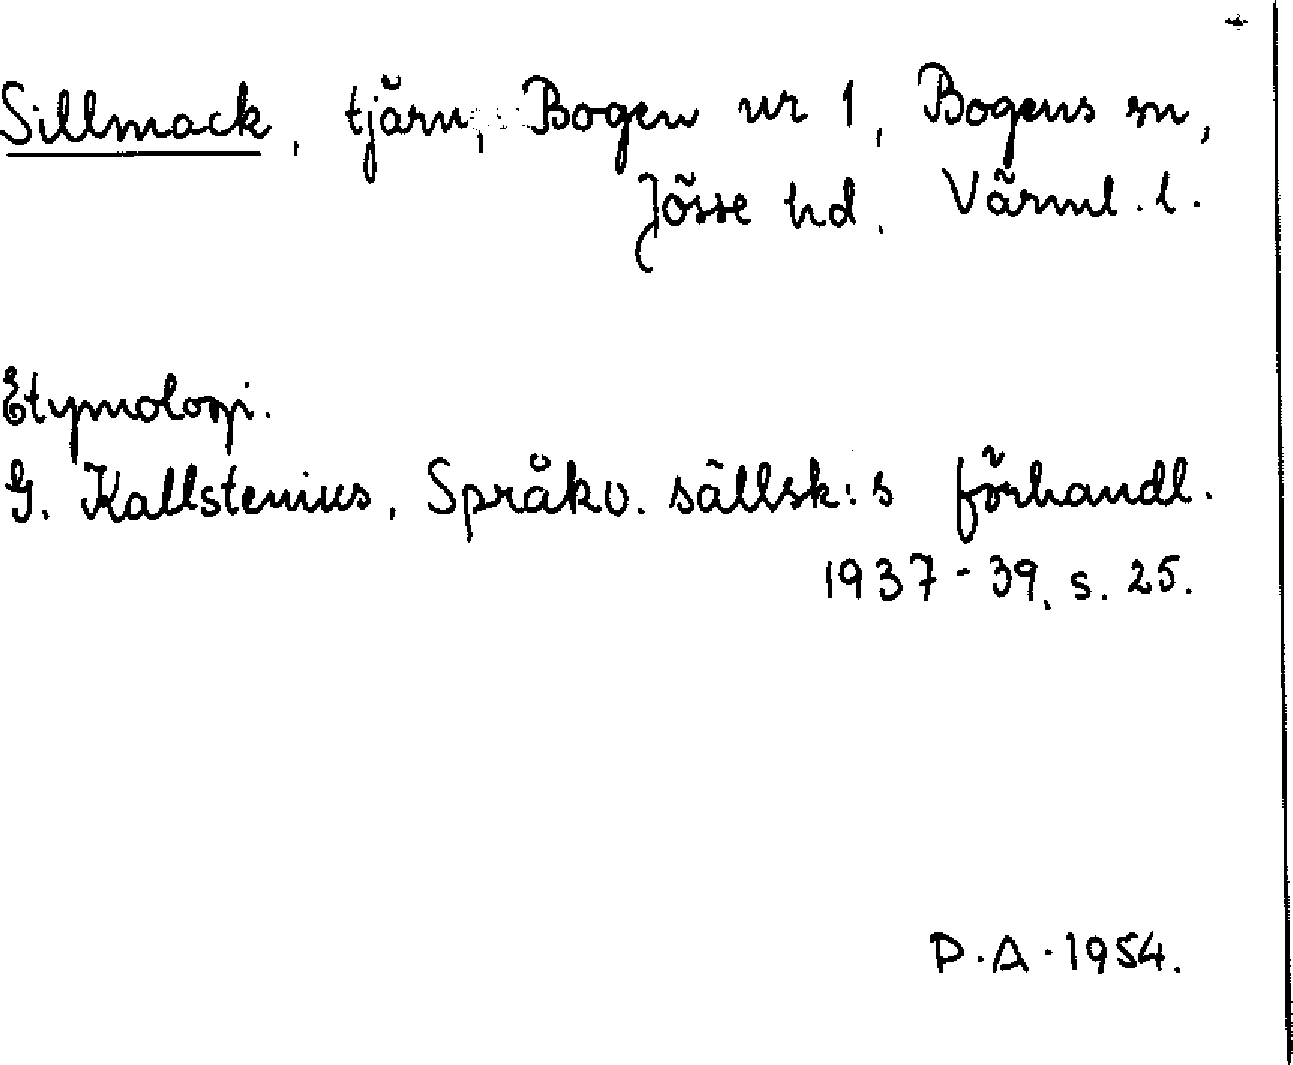 Sillmack, tjärn, Bogen nr 1, Bogens sn,
Jösse hd, Värml. l.
Etymologi.
G. Kallstenius, Språkv. sällsk:s förhandl.
1937-39, s. 25.
P.A. 1954.